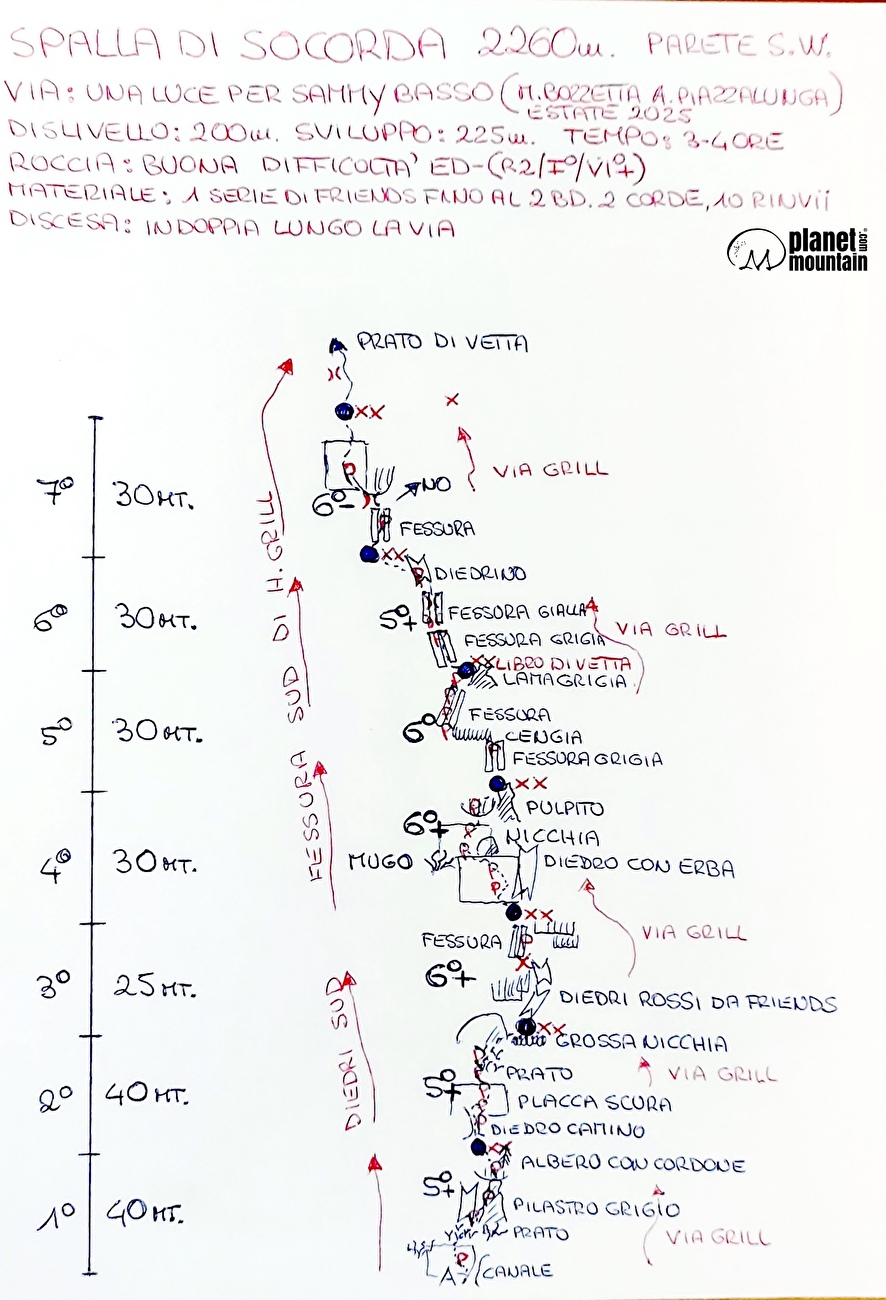 SPALLA DI SOCORDA 2260m. PARETE S.W.
VIA: UNA LUCE PER SAMMY BASSO (M.BOZZETTA A.PIAZZALUNGA)
ESTATE 2025
DISLIVELLO: 200m. SVILUPPO: 225m. TEMPO: 3-4 ORE
ROCCIA: BUONA DIFFICOLTA' ED-(R2/I°/VI°+)
MATERIALE: 1 SERIE DI FRIENDS FINO AL 2 BD. 2 CORDE, 10 RINVII
DISCESA: IN DOPPIA LUNGO LA VIA
planet
mountain
.com
PRATO DI VETTA
XX
X
VIA GRILL
7° 30 MT.
6°-
NO
FESSURA
XX
DIEDRINO
6° 30 MT.
5°+
FESSURA GIALLA
VIA GRILL
FESSURA GRIGIA
XX LIBRO DI VETTA
LAMA GRIGIA
5° 30 MT.
6°
FESSURA
CENGIA
FESSURA GRIGIA
XX
PULPITO
6°+
NICCHIA
4° 30 MT.
MUGO
DIEDRO CON ERBA
XX
FESSURA
VIA GRILL
3° 25 MT.
6°+
DIEDRI ROSSI DA FRIENDS
XX
GROSSA NICCHIA
PRATO
VIA GRILL
2° 40 MT.
5°+
PLACCA SCURA
DIEDRO CAMINO
XX
ALBERO CON CORDONE
5°+
1° 40 MT.
PILASTRO GRIGIO
PRATO
VIA GRILL
A
CANALE
FESSURA SUD DI H. GRILL
DIEDRI SUD